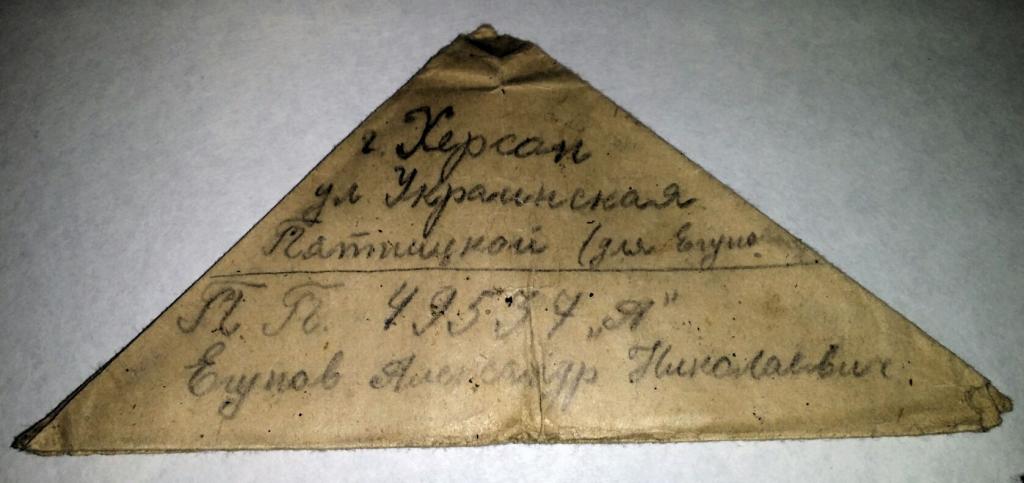 г. Херсон
ул Украинская
(для Егуно
П П. 49534 „Я"
Егунов Александр Николаевич